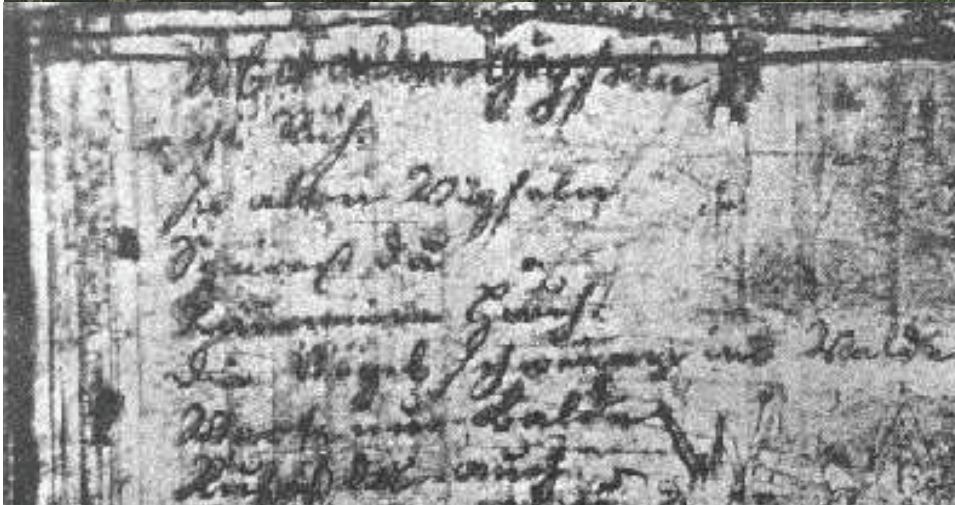 Über allen Gipfeln
ist Ruh
In allen Wipfeln
Spürest du
Kaum einen Hauch
Die Vögel schweigen im Walde
Warte nur balde
Ruhest du auch